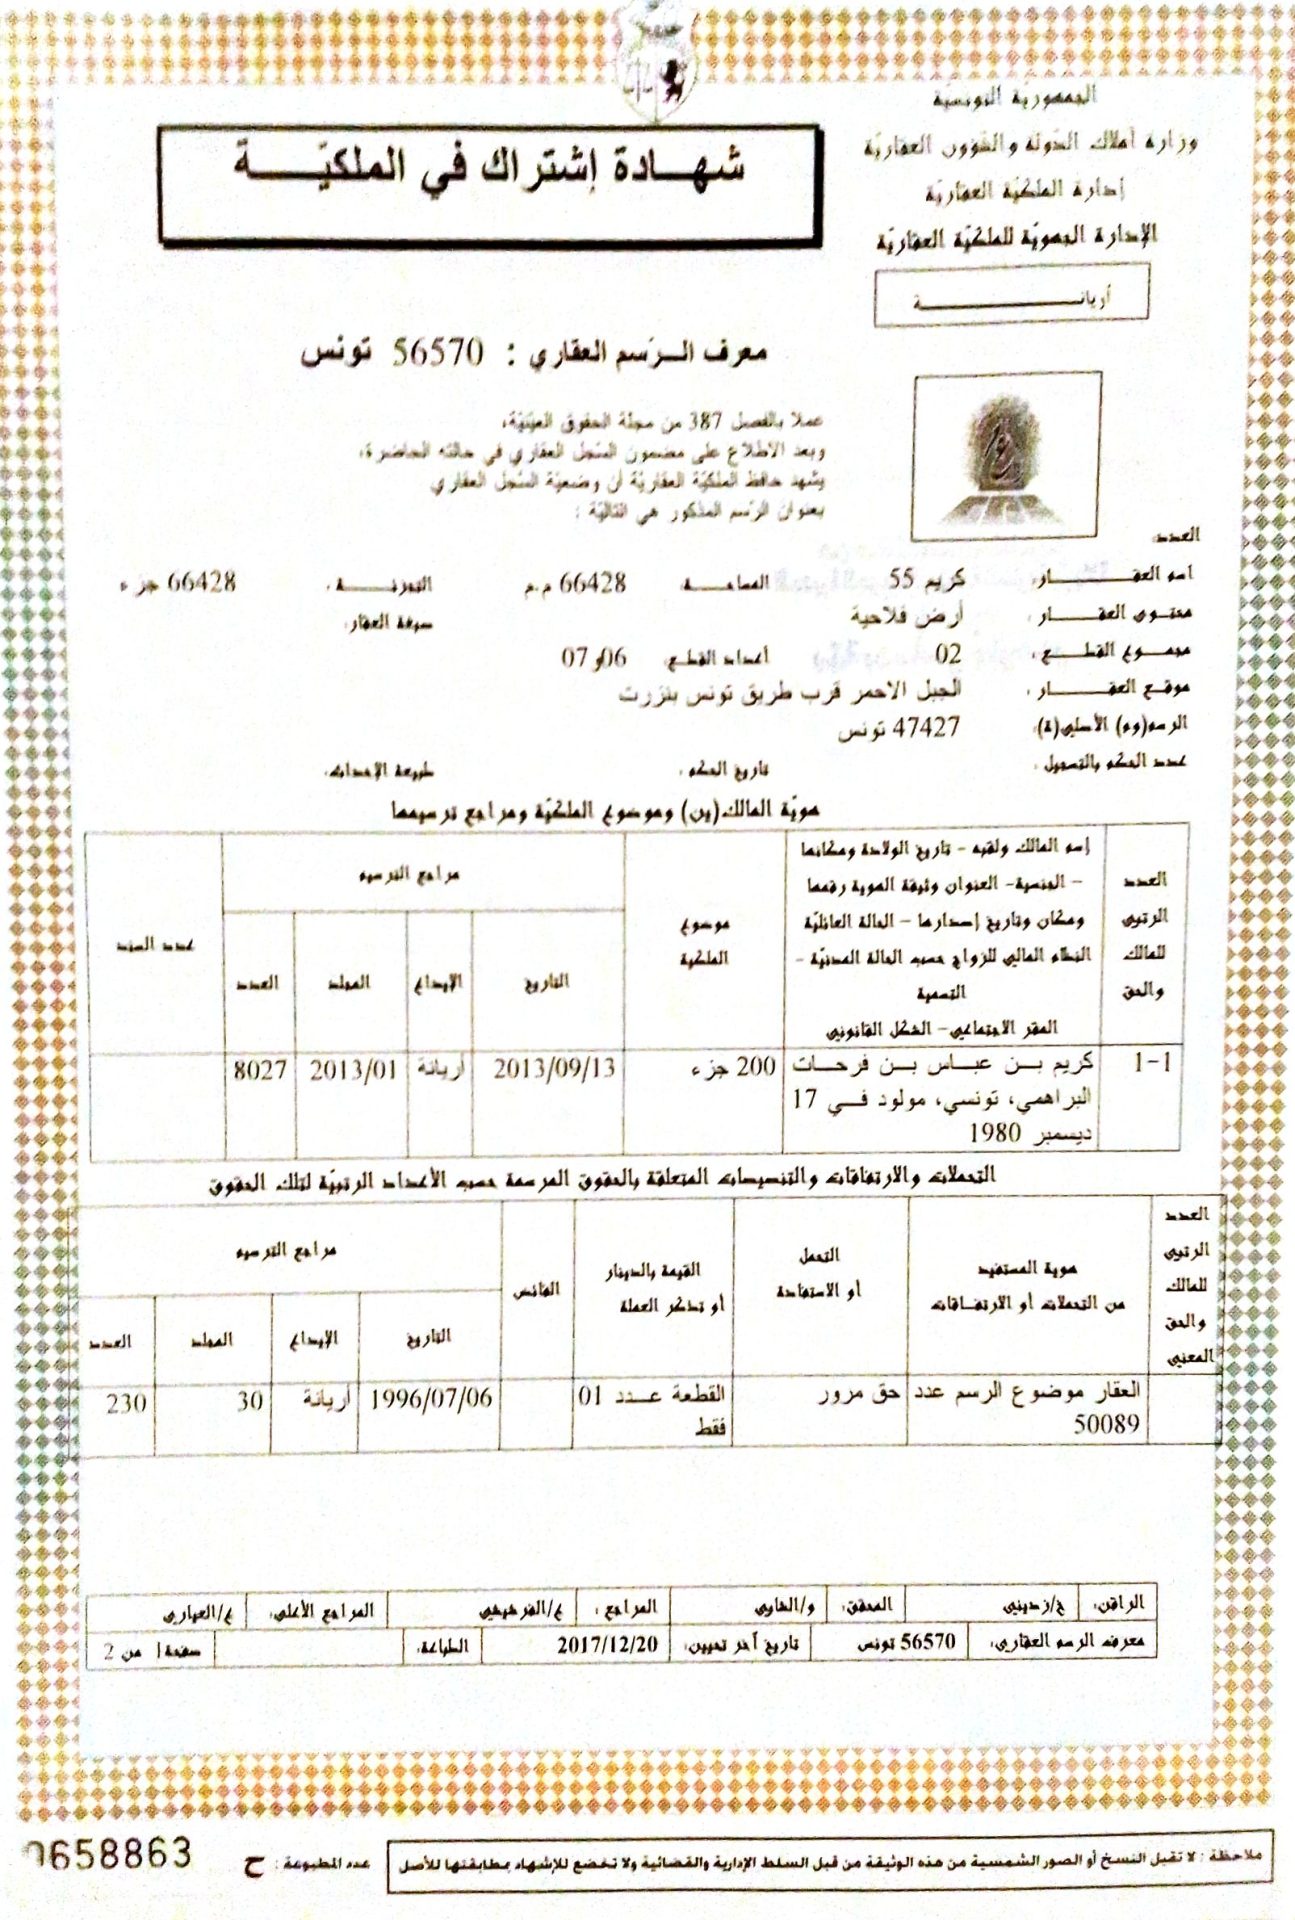 الجمهورية التونسية
وزارة أملاك الدولة والشؤون العقارية
إدارة الملكية العقارية
الإدارة الجهوية للملكية العقارية
أريانـــــــة
شهـــادة إشتراك في الملكيّـــــة
معرف الـرّسم العقاري : 56570 تونس
عملا بالفصل 387 من مجلة الحقوق العينيّة،
وبعد الاطلاع على مضمون السّجل العقاري في حالته الحاضرة،
يشهد حافظ الملكيّة العقاريّة أن وضعيّة السّجل العقاري
بعنوان الرّسم المذكور هي التالية :
العدد:
اسم العقـــار: كريم 55 المساحـة: 66428 م.م التجزئـة: 66428 جزء
محتوى العقـــار: أرض فلاحية صبغة العقار:
مجموع القطـــع: 02 أعداد القطع: 06و07
موقع العقـــار: الجبل الاحمر قرب طريق تونس بنزرت
الرسم(وم) الأصلي(ة): 47427 تونس
عدد الحكم بالتسجيل: تاريخ الحكم: طبيعة الإحداث:
هويّة المالك(ين) وموضوع الملكيّة ومراجع ترسيمها
العدد الرتبي للمالك والحق
إسم المالك ولقبه - تاريخ الولادة ومكانها
- الجنسية- العنوان وثيقة الهوية رقمها
ومكان وتاريخ إصدارها - الحالة العائليّة
النظام المالي للزواج حسب الحالة المدنيّة -
التسمية
المقر الاجتماعي- الشكل القانوني
موضوع الملكية
مراجع الترسيم
التاريخ الإيداع المجلد العدد
عدد السند
1-1 كريم بـن عبـاس بـن فرحـات 200 جزء 2013/09/13 اريانة 2013/01 8027
البراهمي، تونسي، مولود فـي 17
ديسمبر 1980
التحملات والارتفاقات والتنصيصات المتعلقة بالحقوق المرسمة حسب الأعداد الرتبيّة لتلك الحقوق
العدد الرتبي للمالك والحق المعني
هوية المستفيد
من التحملات أو الارتفـاقات
التحمل
أو الاستفادة
القيمة بالدينار
أو تذكر العملة
الفائض
مراجع الترسيم
التاريخ الإيداع المجلد العدد
العقار موضوع الرسم عدد حق مرور القطعة عـدد 01 1996/07/06 اريانة 30 230
50089 فقط
الراقن: خ/زديني المحقق: و/الشاوي المراجع: ع/الفرشيشي المراجع الأعلى: ع/العياري
معرف الرسم العقاري: 56570 تونس تاريخ آخر تحيين: 2017/12/20 الطباعة: صفحة1 من 2
ملاحظة : لا تقبل النسخ أو الصور الشمسية من هذه الوثيقة من قبل السلط الإدارية والقضائية ولا تخضع للإشهاد بمطابقتها للأصل
عدد المطبوعة : ح 0658863